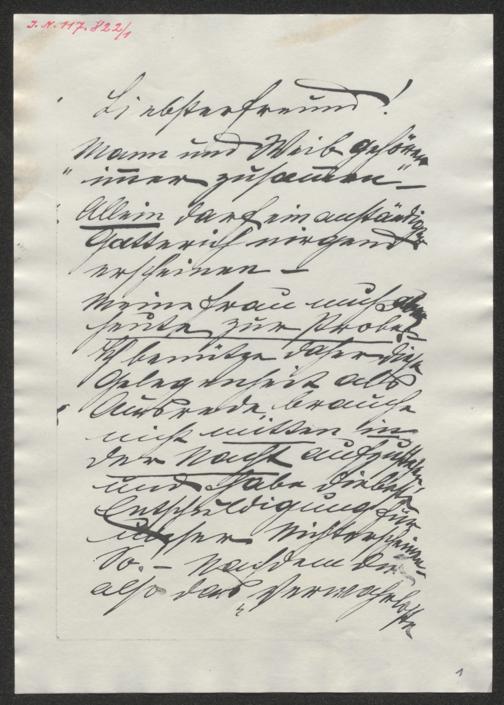 I.N. 117.822/1
Liebster Freund!
Mann und Weib gehören
"immer zusammen" –
Allein darf ein anständiger
Gatterich nirgends
erscheinen –
Meine Frau muß aber
heute zur Probe!
Ich benütze daher diese
Gelegenheit als
Ausrede, brauche
nicht mitten in
der Nacht aufzustehen
und habe die beste
Entschuldigung für
unser Nichterscheinen.
So. – Nachdem Du
also das
1